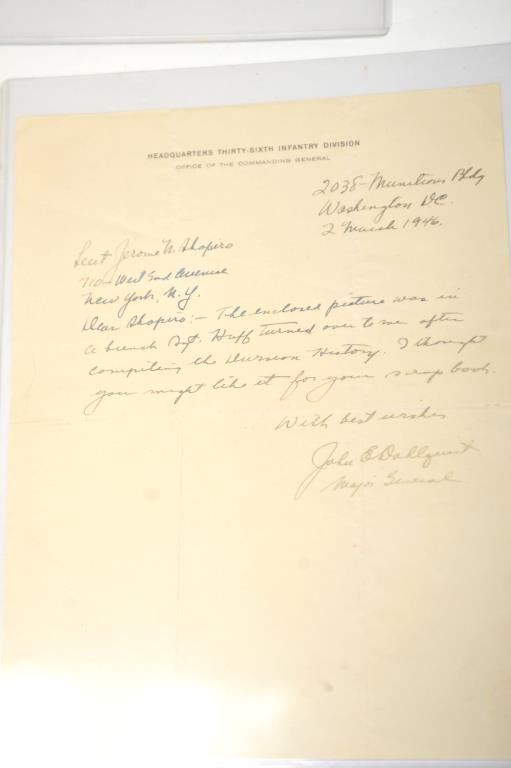 HEADQUARTERS THIRTY-SIXTH INFANTRY DIVISION
OFFICE OF THE COMMANDING GENERAL
2038-Munitions Bldg
Washington DC.
2 March 1946.
Lieut Jerome N. Shapiro
710-West End Avenue
New York, N.Y.
Dear Shapiro:- The enclosed picture was in
a bunch Sgt. Huff turned over to me after
completing the Division History. I thought
you might like it for your scrap book.
With best wishes
John E Dahlquist
Major General